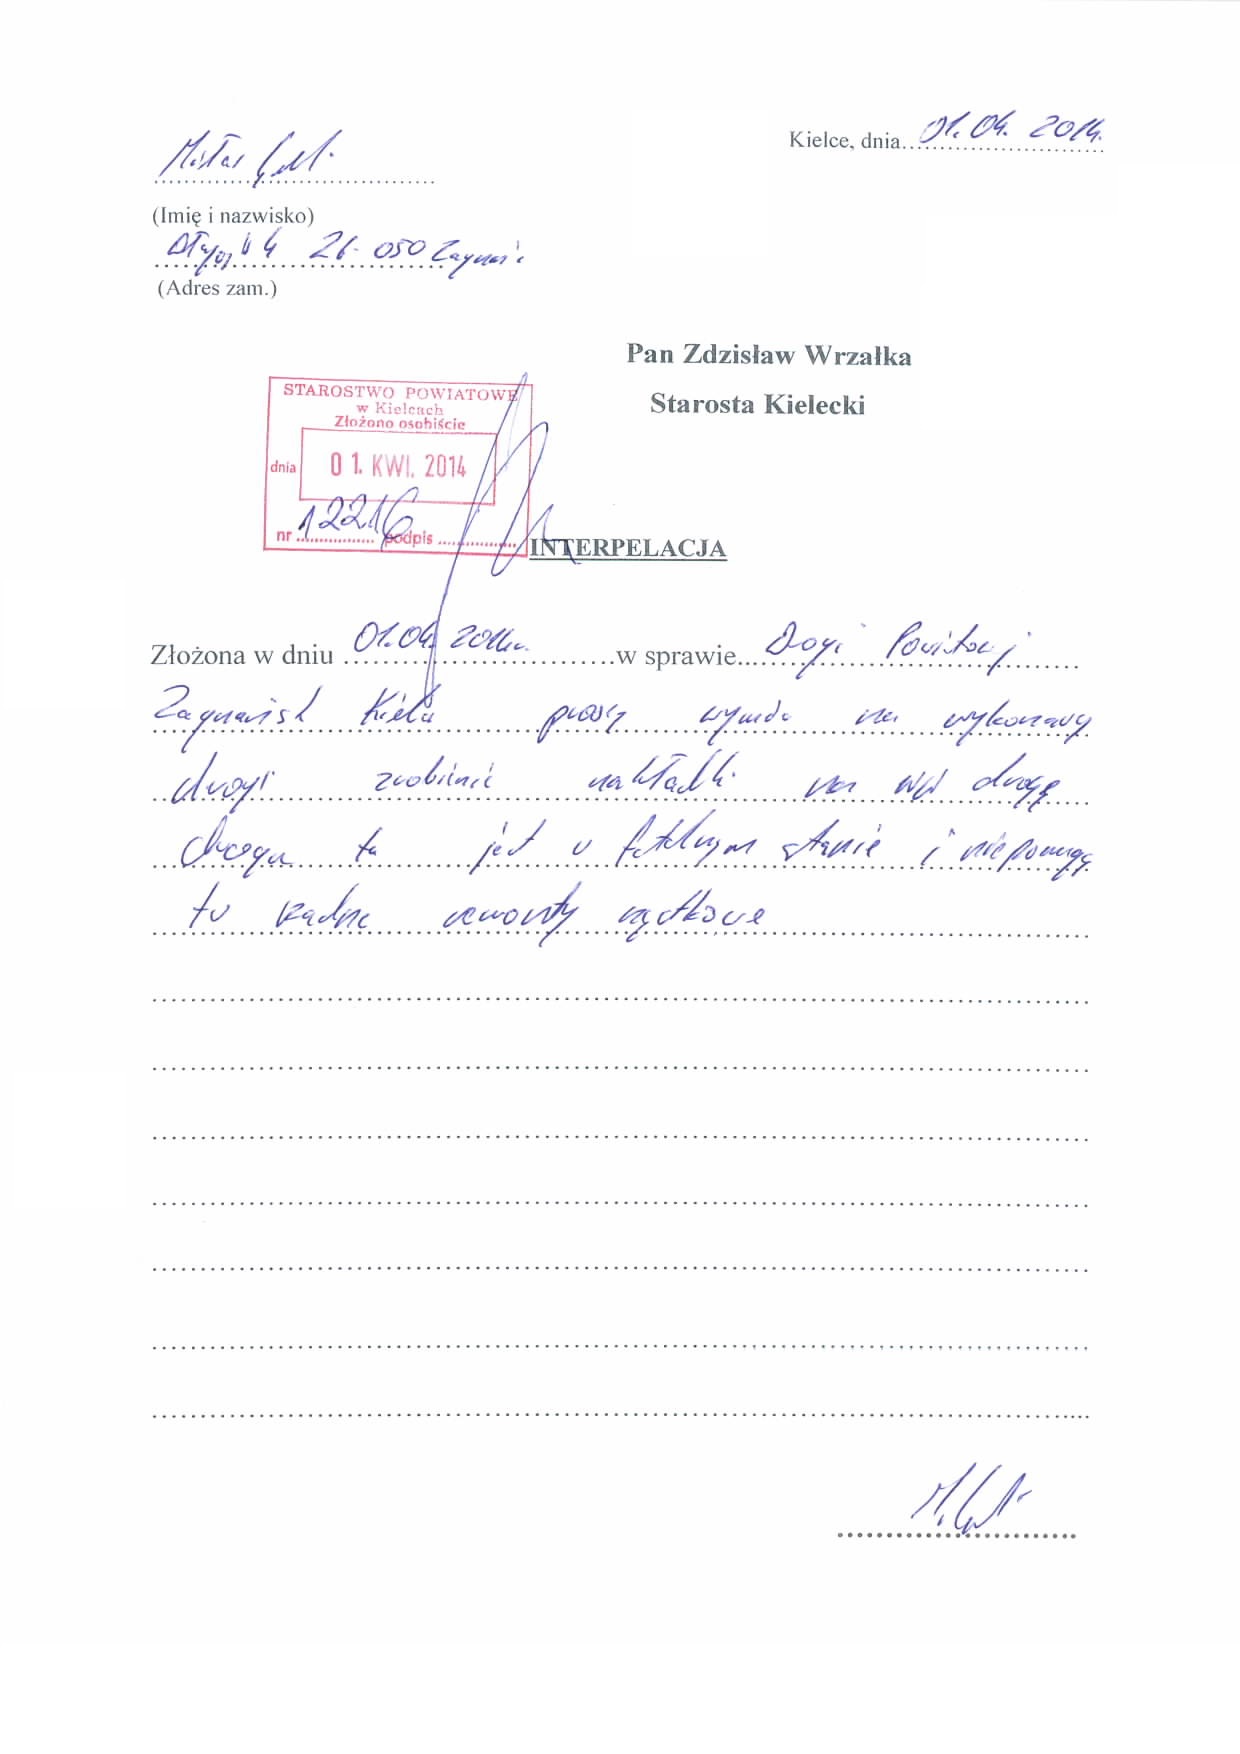 Kielce, dnia 01.04. 2014.
(Imię i nazwisko)
4 26-050 Zagnańs
(Adres zam.)
Pan Zdzisław Wrzałka
Starosta Kielecki
STAROSTWO POWIATOWE
w Kielcach
Złożono osobiście
dnia 01. KWI. 2014
nr 12216 podpis
INTERPELACJA
Złożona w dniu 01.04. 2014r. w sprawie Drogi Powiatowej
Zagnańsk proszę na
drogi zrobienie nakładki na w/w drogę
droga ta jest w fatalnym stanie i nie pomogą
tu żadne remonty cząstkowe